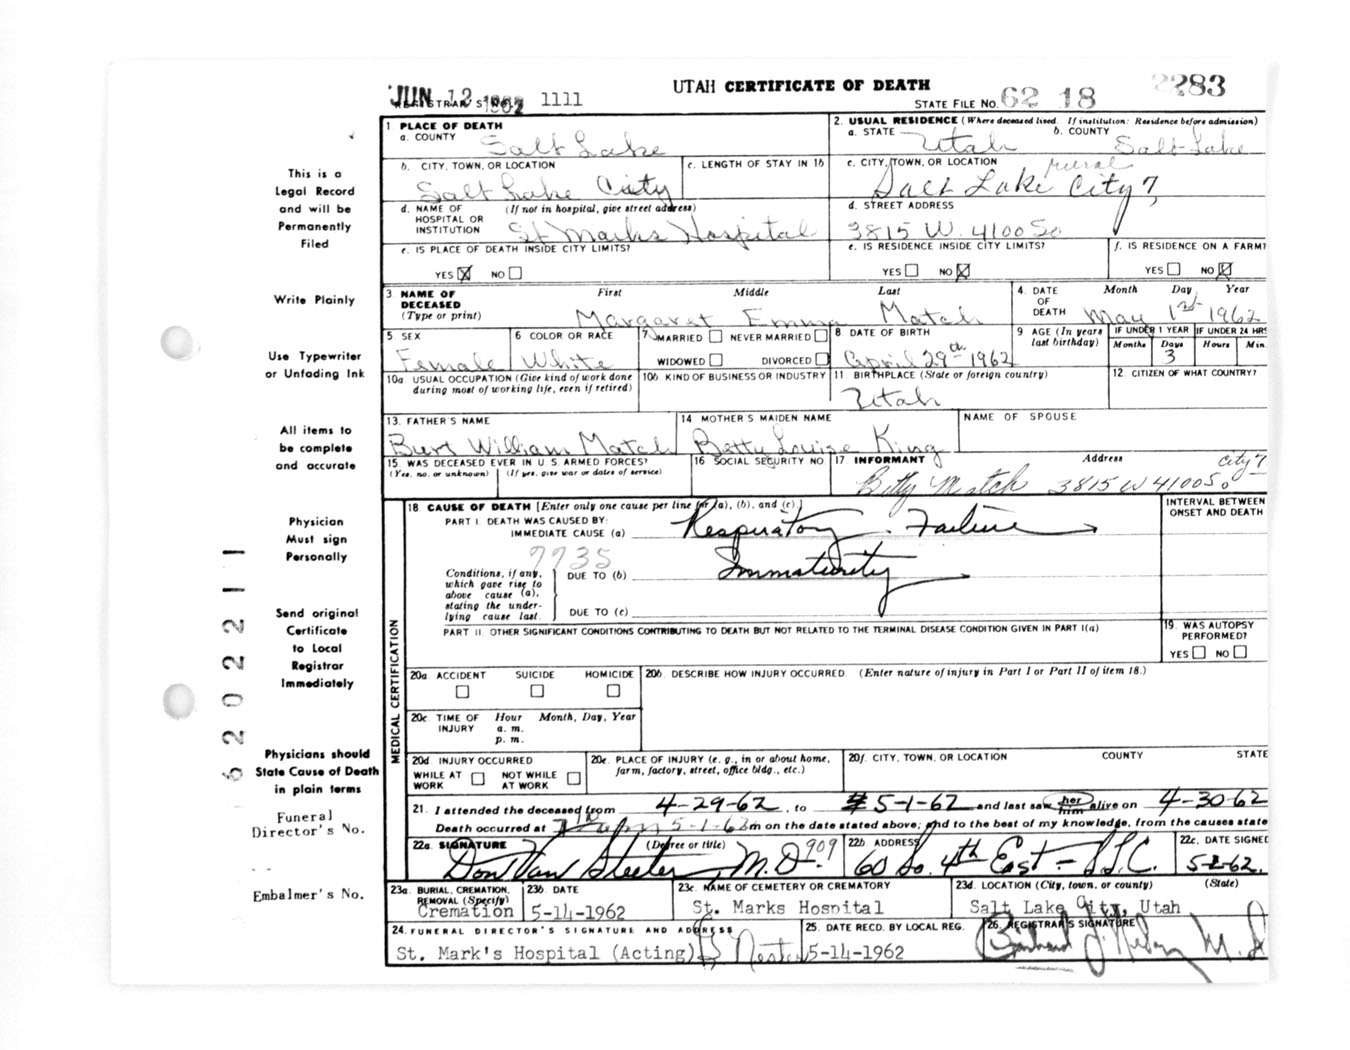 JUN 12 1962
REGISTRAR'S NO. 1111
UTAH CERTIFICATE OF DEATH
2283
STATE FILE NO. 62 18
This is a
Legal Record
and will be
Permanently
Filed
Write Plainly
Use Typewriter
or Unfading Ink
All items to
be complete
and accurate
Physician
Must sign
Personally
Send original
Certificate
to Local
Registrar
Immediately
Physicians should
State Cause of Death
in plain terms
Funeral
Director's No.
Embalmer's No.
1 PLACE OF DEATH
a. COUNTY Salt Lake
2. USUAL RESIDENCE (Where deceased lived. If institution: Residence before admission)
a. STATE Utah b. COUNTY Salt Lake
b. CITY, TOWN, OR LOCATION Salt Lake City
c. LENGTH OF STAY IN 1b
c. CITY, TOWN, OR LOCATION rural
Salt Lake City 7,
d. NAME OF HOSPITAL OR INSTITUTION (If not in hospital, give street address) St Marks Hospital
d. STREET ADDRESS
3815 W. 4100 So
e. IS PLACE OF DEATH INSIDE CITY LIMITS?
YES ☒ NO ☐
e. IS RESIDENCE INSIDE CITY LIMITS?
YES ☐ NO ☒
f. IS RESIDENCE ON A FARM?
YES ☐ NO ☒
3 NAME OF DECEASED (Type or print) First Middle Last
Margaret Emma Match
4. DATE OF DEATH Month Day Year
May 1st 1962
5 SEX
Female
6 COLOR OR RACE
White
7. MARRIED ☐ NEVER MARRIED ☐
WIDOWED ☐ DIVORCED ☐
8 DATE OF BIRTH
April 29th 1962
9 AGE (In years last birthday)
IF UNDER 1 YEAR Months Days 3
IF UNDER 24 HRS Hours Min.
10a USUAL OCCUPATION (Give kind of work done during most of working life, even if retired)
10b. KIND OF BUSINESS OR INDUSTRY
11 BIRTHPLACE (State or foreign country)
Utah
12. CITIZEN OF WHAT COUNTRY?
13. FATHER'S NAME
Burt William Match
14 MOTHER'S MAIDEN NAME
Betty Louise King
NAME OF SPOUSE
15. WAS DECEASED EVER IN U. S. ARMED FORCES?
(Yes, no, or unknown) (If yes, give war or dates of service)
16 SOCIAL SECURITY NO
17 INFORMANT Address
Betty Match 3815 W 4100 So City 7
MEDICAL CERTIFICATION
18 CAUSE OF DEATH [Enter only one cause per line for (a), (b), and (c).]
INTERVAL BETWEEN ONSET AND DEATH
PART I. DEATH WAS CAUSED BY:
IMMEDIATE CAUSE (a) Respiratory Failure
7735
Conditions, if any, which gave rise to above cause (a), stating the underlying cause last.
DUE TO (b) Immaturity
DUE TO (c)
PART II. OTHER SIGNIFICANT CONDITIONS CONTRIBUTING TO DEATH BUT NOT RELATED TO THE TERMINAL DISEASE CONDITION GIVEN IN PART I(a)
19. WAS AUTOPSY PERFORMED?
YES ☐ NO ☐
20a. ACCIDENT SUICIDE HOMICIDE
☐ ☐ ☐
20b. DESCRIBE HOW INJURY OCCURRED. (Enter nature of injury in Part I or Part II of item 18.)
20c. TIME OF INJURY Hour Month, Day, Year
a. m.
p. m.
20d. INJURY OCCURRED
WHILE AT WORK ☐ NOT WHILE AT WORK ☐
20e. PLACE OF INJURY (e. g., in or about home, farm, factory, street, office bldg., etc.)
20f. CITY, TOWN, OR LOCATION COUNTY STATE
21. I attended the deceased from 4-29-62, to 5-1-62 and last saw her him alive on 4-30-62
Death occurred at 5-1-62 m on the date stated above; and to the best of my knowledge, from the causes state
22a. SIGNATURE (Degree or title)
Don Van Steeter M.D. 909
22b ADDRESS
60 So. 4th East - S.L.C.
22c. DATE SIGNED
5-2-62.
23a. BURIAL, CREMATION, REMOVAL (Specify)
Cremation
23b. DATE
5-14-1962
23c. NAME OF CEMETERY OR CREMATORY
St. Marks Hospital
23d. LOCATION (City, town, or county) (State)
Salt Lake City, Utah
24. FUNERAL DIRECTOR'S SIGNATURE AND ADDRESS
St. Mark's Hospital (Acting)
25. DATE RECD. BY LOCAL REG.
5-14-1962
26. REGISTRAR'S SIGNATURE
M.D